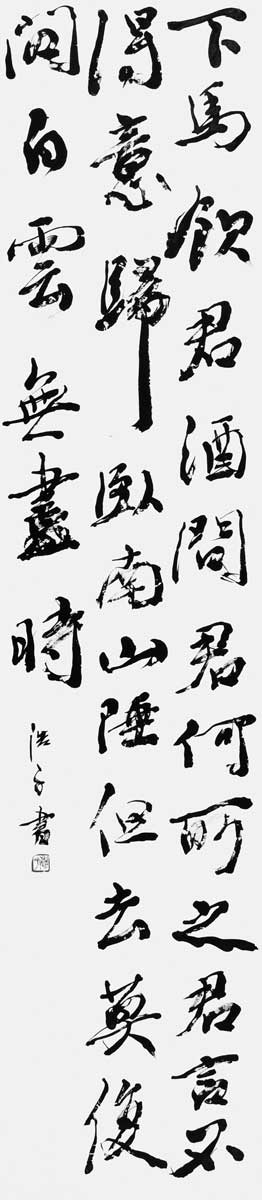 下馬飲君酒問君何所之君言不
得意歸臥南山陲但去莫復
聞白雲無盡時
浩子書